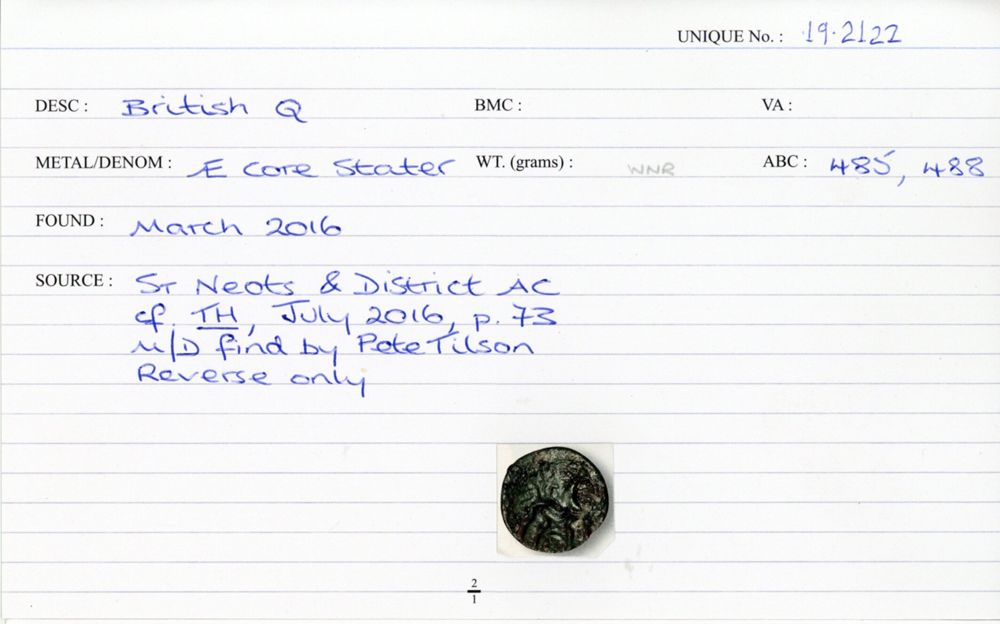 UNIQUE No. : 19.2122
DESC : British Q BMC : VA :
METAL/DENOM : Æ core Stater WT. (grams) : WNR ABC : 485, 488
FOUND : March 2016
SOURCE : St Neots & District AC
cf. TH, July 2016, p. 73
M/D find by Pete Tilson
Reverse only
2
1